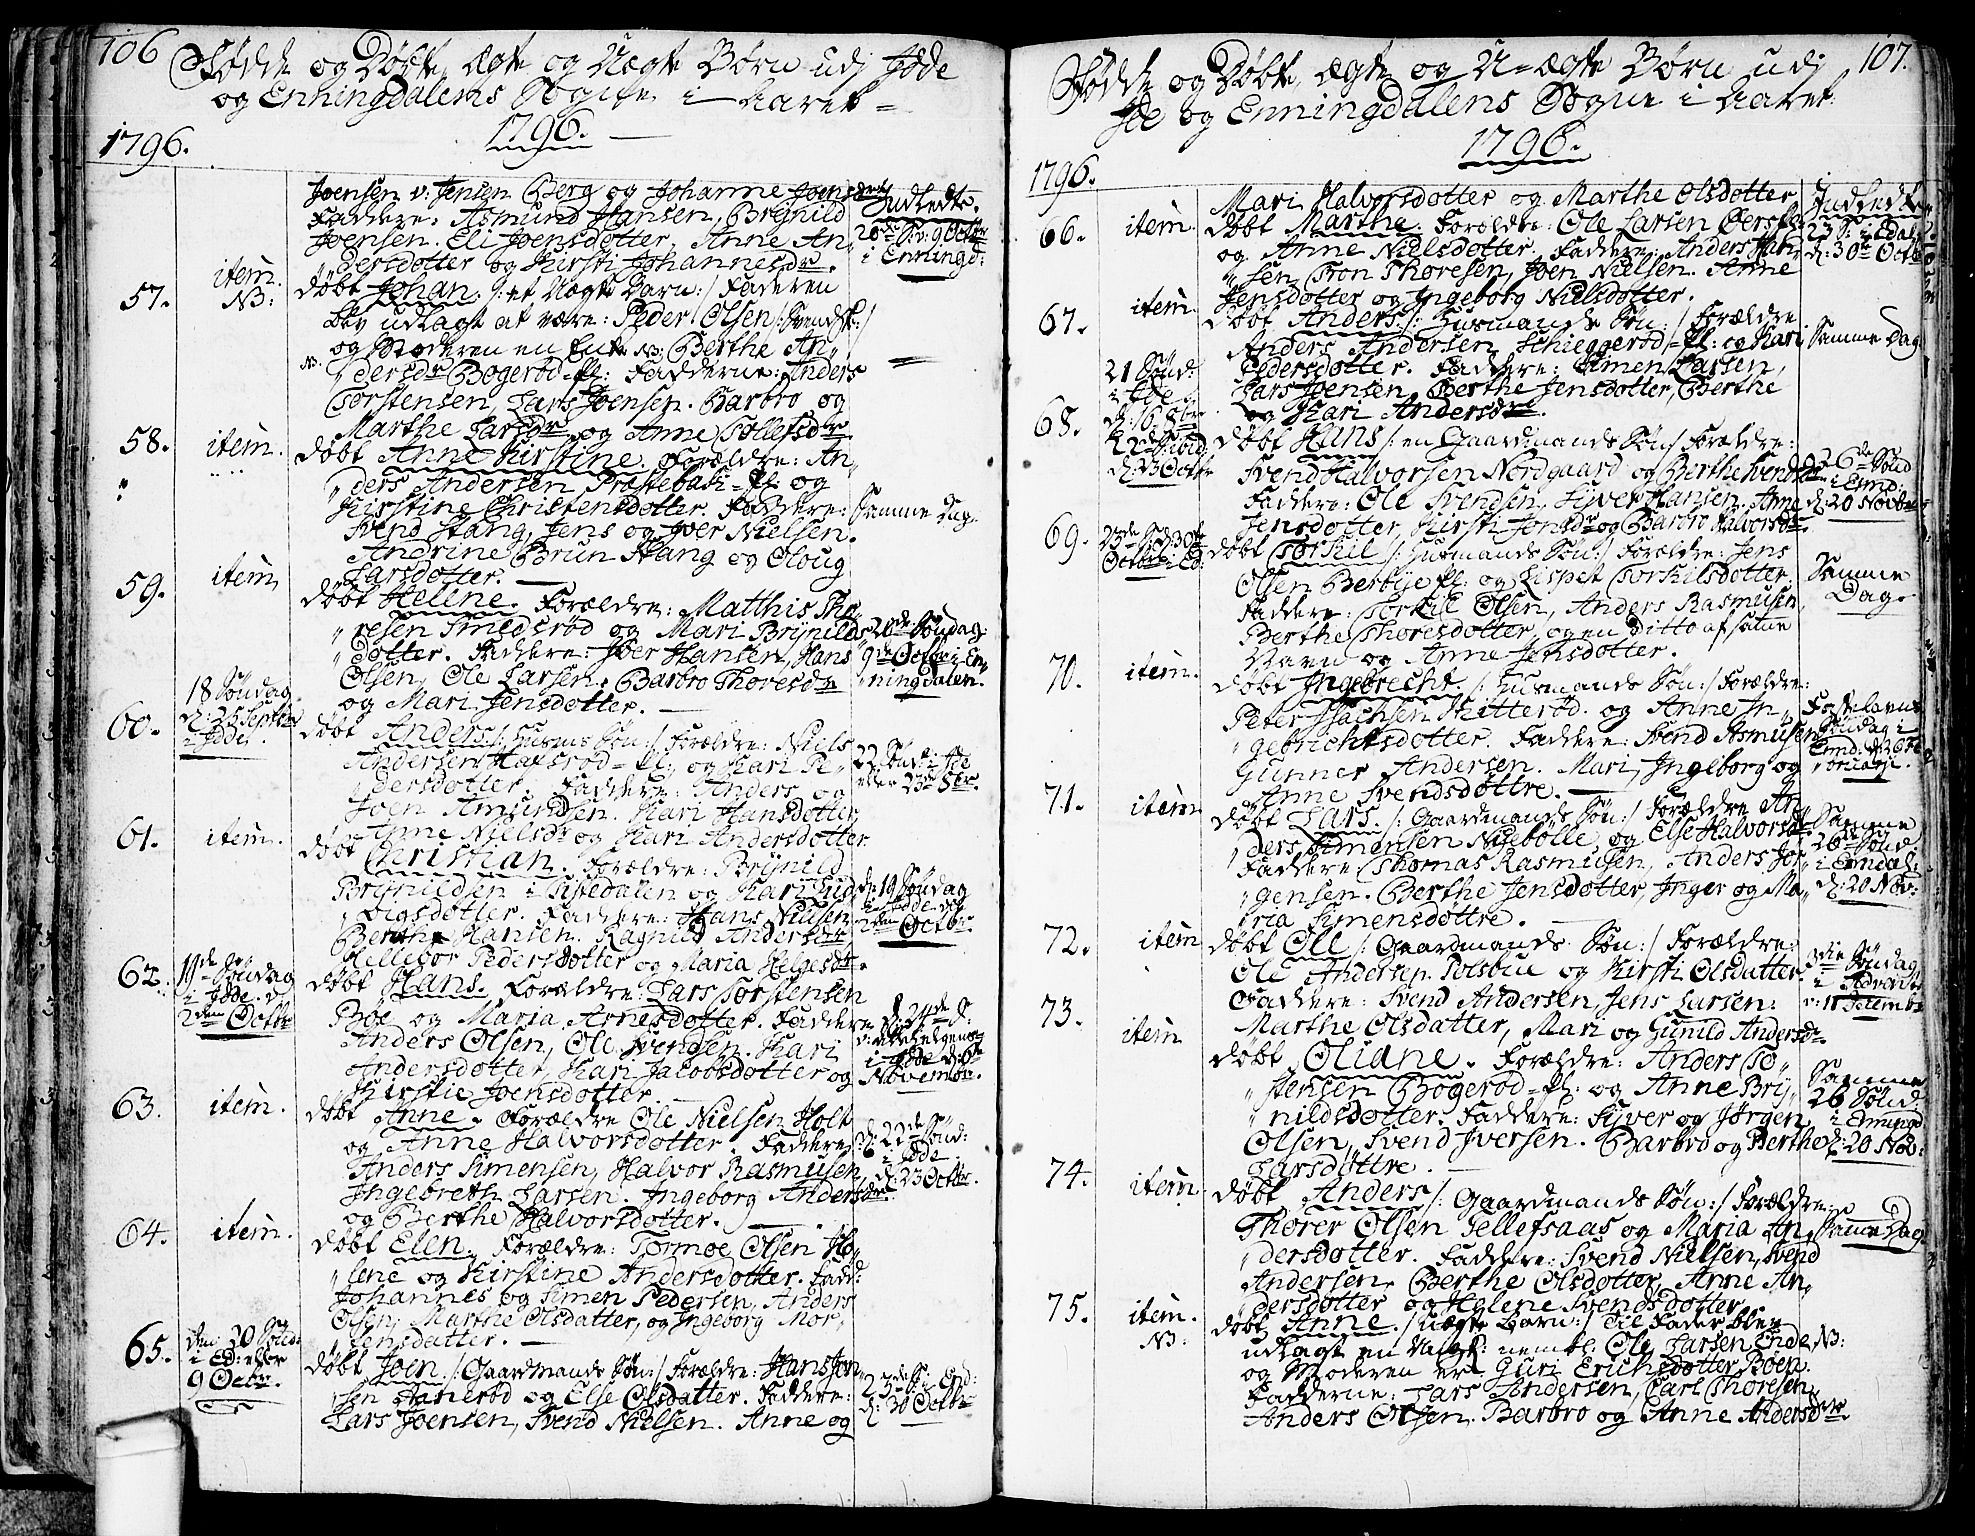 106
Fødde og Døbte, Ægte og Uægte Børn udj Idde
og Enningdalens Sogne i Aaret
1796.
1796.
Joensen v: Jensen Berg og Johanne Joensdotr
Faddere: Asmund Hansen, Brynild
Joensen. Eli Joensdotter, Anne An„
„dersdotter og Kirsti Johannesdr.
Indledte.
20de S: v: 9 Octbr
i Enningd:
57.
item.
NB:
døbt Johan /: et Uægte Barn :/ Faderen
blev udlagt at være: Peder Olsen /: Svensk :/
og Moderen en Enke NB: Berthe An„
„dersdr Bøgerød-Ei: Fadderne: Anders
Torstensen, Lars Joensen. Barbro og
Marthe Larsdr og Anne Tollefsdr.
58.
item.
døbt Anne Kirstine. Forældre: An„
„ders Andersen Præstebak-Ei og
Kirstine Christensdotter. Faddere:
Svend Stang, Jens og Iver Nielsen.
Andrine Brun Stang og Oloug
Larsdotter.
Samme Dag.
59.
item
døbt Helene. Forældre: Matthis Tho„
„resen Smedsrød og Mari Brynilds„
„dotter. Faddere: Iver Hansen, Hans
Olsen, Ole Larsen. Barbro Thoresdr
og Mari Jensdotter.
20de Søndag
9de Octbr i En„
„ningdalen.
60.
18 Søndag
d: 25 Septbr
i Idde.
døbt Anders /: Husmds Søn :/ Forældre: Niels
Andersen Hafsrød-Ei: og Kari Pe„
„dersdotter. Faddere: Anders og
Joen Amundsen. Kari Hansdotter,
Anne Nielsdr og Kari Andersdotter
22 Sønd: i Idde
eller 23de 8br.
61.
item.
døbt Christian. Forældre: Brynild
Brynildsen i Tistedalen og Kari Lud„
„vigsdotter. Faddere: Hans Nielsen
Berthe Hansen. Ragnild Andersdr
Hellebor Pedersdotter og Maria Helgesdr.
de 19 Søndag
i Idde den
2den Octbr.
62.
19de Søndag
i Idde. d
2den Octbr
døbt Hans. Forældre: Lars Torstensen
Bøe og Maria Arnesdotter. Faddere
Anders Olsen, Ole Svendsen. Kari
Andersdotter, Kari Jacobsdotter og
Kirstie Joensdotter.
d: 24de S:
i Idde d: 6te
November.
63.
item.
døbt Anne. Forældre Ole Nielsen Holt
og Anne Halvorsdotter. Faddere
Anders Simensen, Halvor Rasmusen,
Ingebreth Larsen. Ingeborg Andersdr
og Berthe Halvorsdotter.
d: 22de Sønd:
i Idde
d: 23 Octbr.
64.
item.
døbt Elen. Forældre: Tormoe Olsen Ho„
„lene og Kirstine Andersdotter. Fadd:
Johannes og Simen Pedersen, Anders
Olsen, Marthe Olsdatter, og Ingeborg Mor„
„tensdatter.
65.
den 20 Sønd:
i Ed: eller
9 Octbr.
døbt Joen. /: Gaardmands Søn :/ Forældre: Hans Jon„
„sen og Else Olsdatter. Faddere:
Lars Joensen, Svend Nielsen. Anne og
23de S: End:
d: 30 Octbr
107.
Fødde og Døbte, Ægte og U-ægte Børn udj
Ide og Enningdalens Sogne i Aaret
1796.
1796.
Mari Halvorsdotter og Marthe Olsdotter
Indledte.
66.
item.
døbt Marthe. Forældre: Ole Larsen
og Anne Nielsdotter. Faddere: Anders Han„
„sen, Tron Thoresen, Joen Nielsen. Anne
Jensdotter og Ingeborg Nielsdotter.
23 S: i Edal
d: 30te Octbr
67.
item.
døbt Anders. /: Husmands Søn :/ Forældre
Anders Andersen, Schieggerød-Ei: og Kari
Pedersdotter. Faddere: Simen Larsen,
Lars Joensen, Berthe Jensdotter, Berthe
og Kari Andersdr.
Samme Dag
68.
21 Sønd:
i Idde
d: 16 8br
22de Sønd
d: 23 Octbr
døbt Hans /: en Gaardmands Søn :/ Forældre:
Svend Halvorsen Nordgaard og Berthe Svendsdr
Faddere: Ole Svendsen, Siver Hansen. Anne
Jensdotter, Kirsti Jonsdr og Barbro Halvorsdr.
26de Sønd
i Enind:
d: 20 Novbr
69.
23de S: d: 30te
Octbr i Ed:
døbt Torkil /: Husmands Søn :/ Forældre: Jens
Olsen Berbye Ei: og Lispet Torkilsdotter.
Faddere: Torkil Olsen, Anders Rasmusen,
Berthe Thoresdotter, og en ditto af samme
Navn og Anne Jensdotter.
Samme
Dag.
70.
item.
døbt Ingebrecht. /: Husmands Søn :/ Forældre:
Peter Isachsen Hitterød. og Anne In„
„gebrichtsdotter. Faddere: Svend Asmusen
Gunner Andersen. Mari, Ingeborg og
Anne Svendsdøttre.
Fastelavns
Søndag i
71.
item
døbt Lars. /: Gaardmands Søn :/ Forældre An„
„ders Simensen Niebølle, og Else Halvorsdr.
Faddere Thomas Rasmusen, Anders Jør„
„gensen. Berthe Jensdotter, Inger og Ma„
„ria Simensdøttre.
Samme
26 Sønd.
i Enndal:
d: 20 Nov:
72.
item
døbt Ole /: Gaardmands Søn :/ Forældre:
Ole Andersen Tolsbue og Kirsti Olsdatter.
Faddere: Svend Andersen, Jens Larsen.
Marthe Olsdatter, Mari og Gunild Andersdr
3die Søndag
i Advent
d: 11 Decembr
73.
item
døbt Oliane. Forældre: Anders To„
„stensen Bøgerød-Ei: og Anne Bry„
„nildsdotter. Faddere: Siver og Jørgen
Olsen, Svend Iversen. Barbro og Berthe
Larsdøttre.
Samme
26 Sønd:
i Enningd
d: 20 Nov:
74.
item
døbt Anders /: Gaardmands Søn :/ Forældre:
Thorer Olsen Tellefsaas og Maria An„
„dersdotter. Faddere: Svend Nielsen, Svend
Andersen. Berthe Olsdotter, Anne An„
„dersdotter og Helene Svendsdotter.
Samme Dag
75.
item.
NB:
døbt Anne. /: Uægte Barn :/ Til Fader blev
udlagt en Ungk: nemb: Ole Larsen Ende NB:
og Moderen er Guri Erichsdotter Boen.
Fadderne: Lars Andersen, Carl Thoresen,
Anders Olsen. Barbro og Anne Andersdtre.